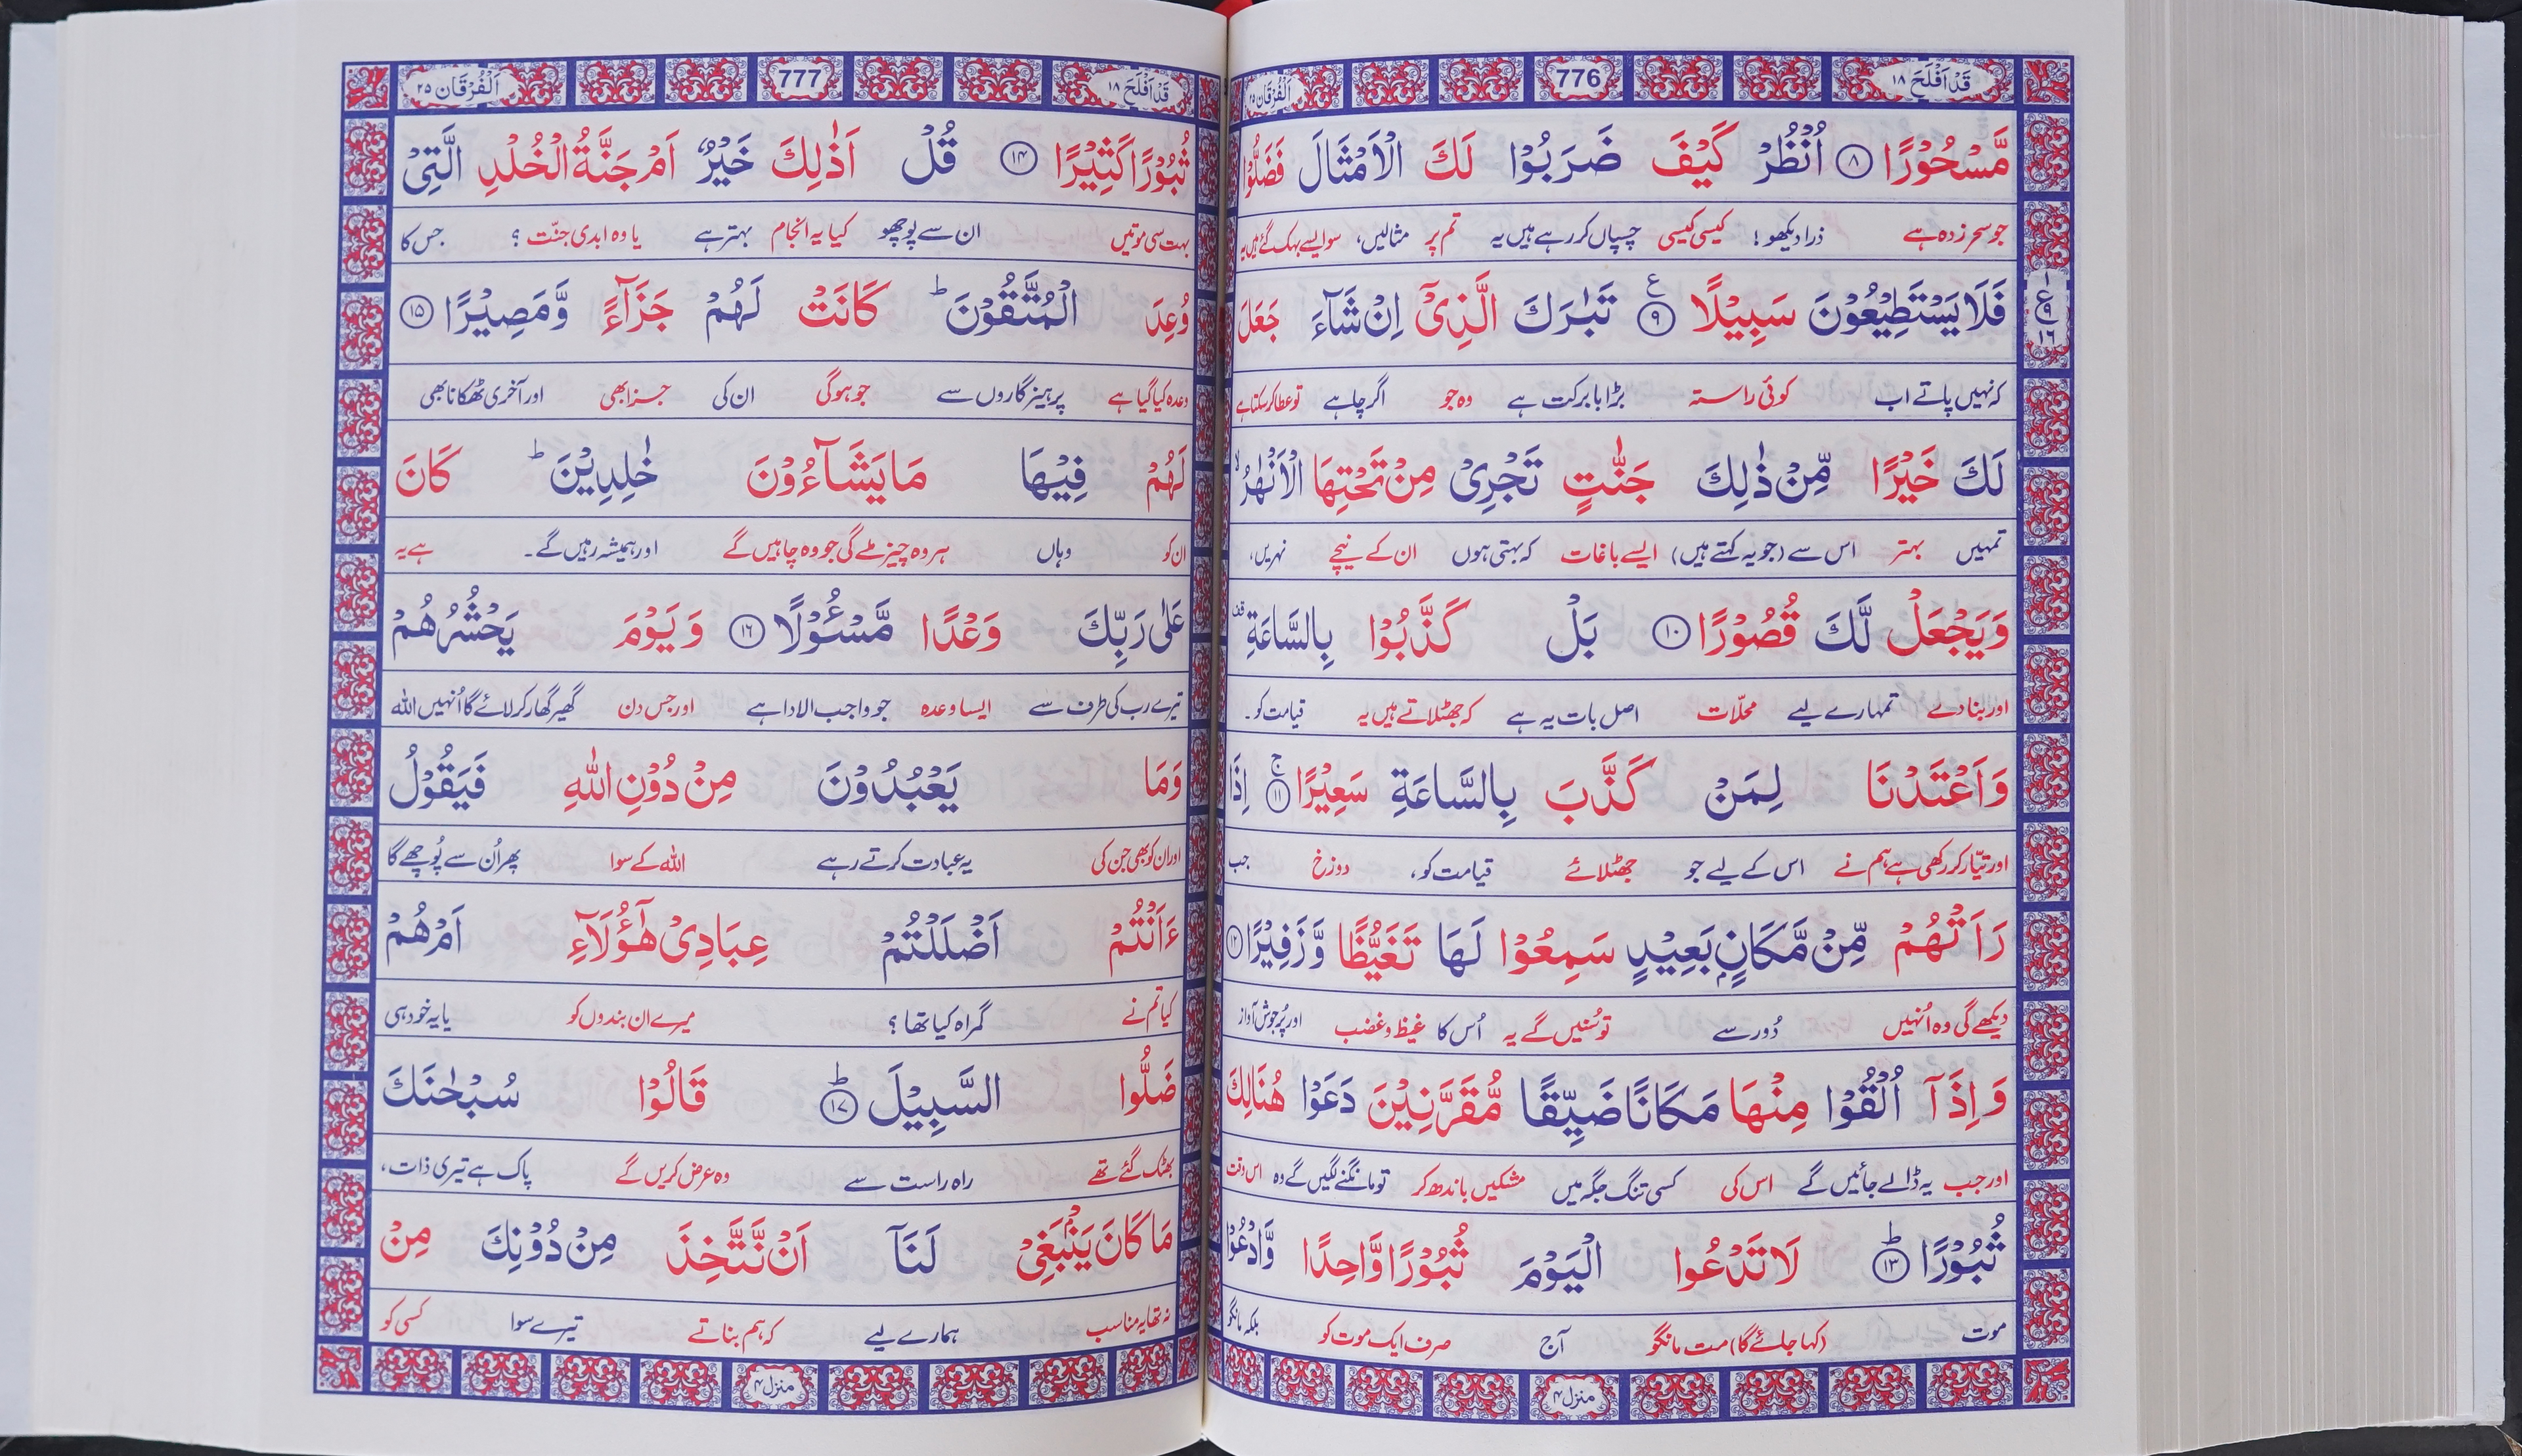 قَدْ اَفْلَحَ ١٨ 776 اَلْفُرْقَان ٢٥
مَّسْحُوْرًا ۝٨ اُنْظُرْ كَيْفَ ضَرَبُوْا لَكَ الْاَمْثَالَ فَضَلُّوْا
جو سحر زدہ ہے ذرا دیکھو! کیسی کیسی چسپاں کر رہے ہیں یہ تم پر مثالیں، سو ایسے بہک گئے ہیں یہ
فَلَا يَسْتَطِيْعُوْنَ سَبِيْلًا ۝٩ ع تَبٰرَكَ الَّذِيْٓ اِنْ شَآءَ جَعَلَ
١ ع ٩ ١٦
کہ نہیں پاتے اب کوئی راستہ بڑا بابرکت ہے وہ جو اگر چاہے تو عطا کر سکتا ہے
لَكَ خَيْرًا مِّنْ ذٰلِكَ جَنّٰتٍ تَجْرِيْ مِنْ تَحْتِهَا الْاَنْهٰرُ ۙ
تمہیں بہتر اس سے (جو یہ کہتے ہیں) ایسے باغات کہ بہتی ہوں ان کے نیچے نہریں،
وَيَجْعَلْ لَّكَ قُصُوْرًا ۝١٠ بَلْ كَذَّبُوْا بِالسَّاعَةِ ۣ
اور بنا دے تمہارے لیے محلّات اصل بات یہ ہے کہ جھٹلاتے ہیں یہ قیامت کو۔
وَاَعْتَدْنَا لِمَنْ كَذَّبَ بِالسَّاعَةِ سَعِيْرًا ۝١١ ج اِذَا
اور تیّار کر رکھی ہے ہم نے اس کے لیے جو جھٹلائے قیامت کو، دوزخ جب
رَاَتْهُمْ مِّنْ مَّكَانٍۢ بَعِيْدٍ سَمِعُوْا لَهَا تَغَيُّظًا وَّزَفِيْرًا ۝١٢
دیکھے گی وہ اُنہیں دُور سے تو سُنیں گے یہ اُس کا غیظ و غضب اور پُرجوش آواز
وَاِذَآ اُلْقُوْا مِنْهَا مَكَانًا ضَيِّقًا مُّقَرَّنِيْنَ دَعَوْا هُنَالِكَ
اور جب یہ ڈالے جائیں گے اس کی کسی تنگ جگہ میں مشکیں باندھ کر تو مانگنے لگیں گے وہ اس وقت
ثُبُوْرًا ۝١٣ ط لَا تَدْعُوا الْيَوْمَ ثُبُوْرًا وَّاحِدًا وَّادْعُوْا
موت (کہا جائے گا) مت مانگو آج صرف ایک موت کو بلکہ مانگو
منزل ۴
قَدْ اَفْلَحَ ١٨ 777 اَلْفُرْقَان ٢٥
ثُبُوْرًا كَثِيْرًا ۝١٤ قُلْ اَذٰلِكَ خَيْرٌ اَمْ جَنَّةُ الْخُلْدِ الَّتِيْ
بہت سی موتیں ان سے پوچھو کیا یہ انجام بہتر ہے یا وہ ابدی جنّت ؟ جس کا
وُعِدَ الْمُتَّقُوْنَ ؕ كَانَتْ لَهُمْ جَزَآءً وَّمَصِيْرًا ۝١٥
وعدہ کیا گیا ہے پرہیز گاروں سے جو ہوگی ان کی جزا بھی اور آخری ٹھکانا بھی
لَهُمْ فِيْهَا مَا يَشَآءُوْنَ خٰلِدِيْنَ ؕ كَانَ
ان کو وہاں ہر وہ چیز ملے گی جو وہ چاہیں گے اور ہمیشہ رہیں گے۔ ہے یہ
عَلٰى رَبِّكَ وَعْدًا مَّسْـُٔوْلًا ۝١٦ وَيَوْمَ يَحْشُرُهُمْ
تیرے رب کی طرف سے ایسا وعدہ جو واجب الادا ہے اور جس دن گھیر گھار کر لائے گا اُنہیں اللہ
وَمَا يَعْبُدُوْنَ مِنْ دُوْنِ اللّٰهِ فَيَقُوْلُ
اور ان کو بھی جن کی یہ عبادت کرتے رہے اللہ کے سوا پھر اُن سے پُوچھے گا
ءَاَنْتُمْ اَضْلَلْتُمْ عِبَادِيْ هٰٓؤُلَآءِ اَمْ هُمْ
کیا تم نے گمراہ کیا تھا ؟ میرے ان بندوں کو یا یہ خود ہی
ضَلُّوا السَّبِيْلَ ۝١٧ ط قَالُوْا سُبْحٰنَكَ
بھٹک گئے تھے راہ راست سے وہ عرض کریں گے پاک ہے تیری ذات،
مَا كَانَ يَنْۢبَغِيْ لَنَآ اَنْ نَّتَّخِذَ مِنْ دُوْنِكَ مِنْ
نہ تھا یہ مناسب ہمارے لیے کہ ہم بناتے تیرے سوا کسی کو
منزل ۴